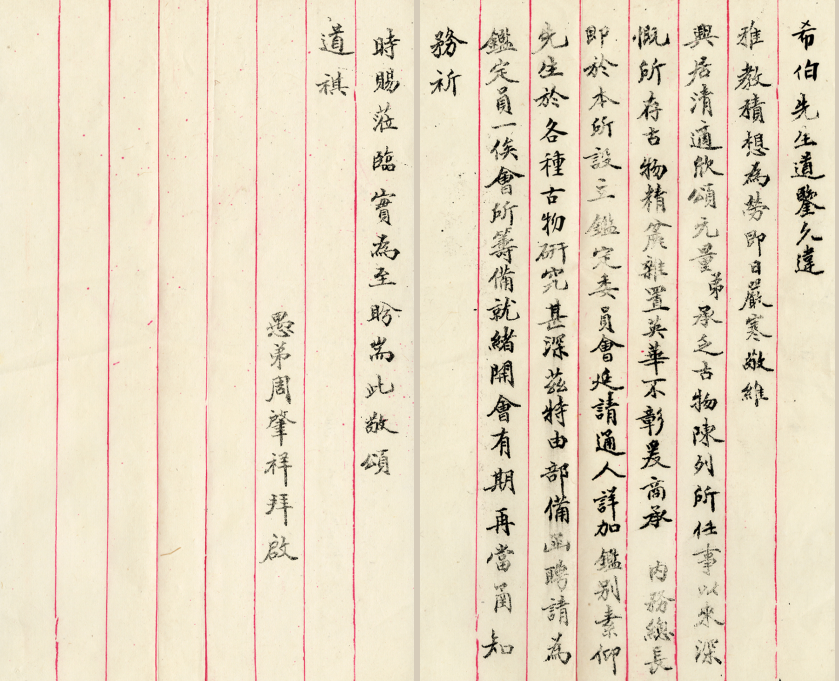 希伯先生道鑒久違
雅教積想為勞即日嚴寒敬維
興居清適欣頌无量弟承乏古物陳列所任事以來深
慨所存古物精麄雜置英華不彰爰商承 內務總長
即於本所設立鑑定委員會延請通人詳加鑑別素仰
先生於各種古物研究甚深茲特由部備函聘請為
鑑定員一俟會所籌備就緒開會有期再當甫知
務祈
時賜蒞臨實為至盼耑此敬頌
道祺
愚弟周肇祥拜啟